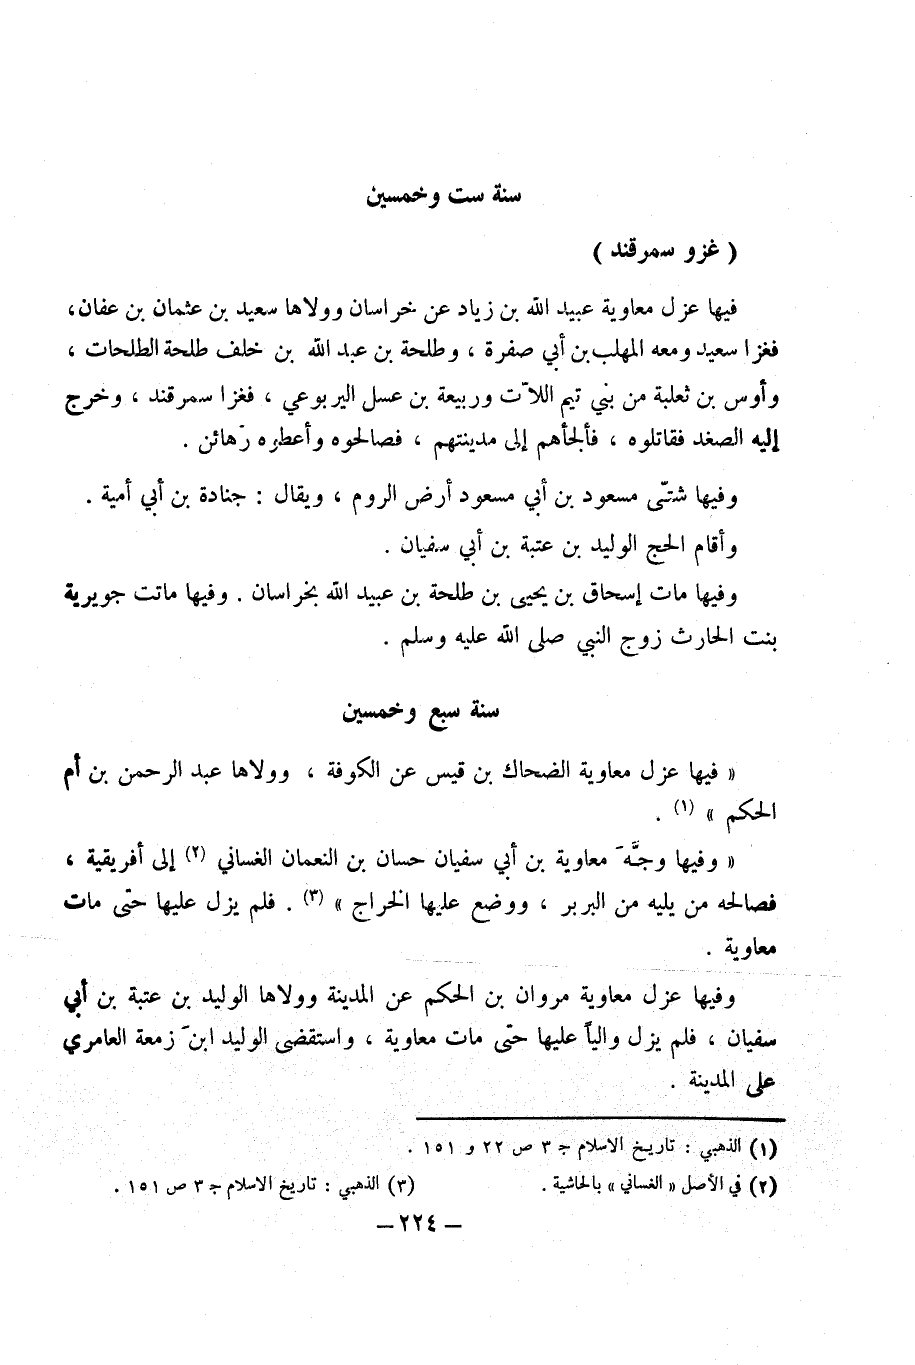 سنة ست وخمسين
( غزو سمرقند )
فيها عزل معاوية عبيد الله بن زياد عن خراسان وولاها سعيد بن عثمان بن عفان ،
فغزا سعيد ومعه المهلب بن أبي صفرة ، وطلحة بن عبد الله بن خلف طلحة الطلحات ،
وأوس بن ثعلبة من بني تيم اللاّت وربيعة بن عسل اليربوعي ، فغزا سمرقند ، وخرج
إليه الصغد فقاتلوه ، فألجأهم إلى مدينتهم ، فصالحوه وأعطوه رَهائن .
وفيها شتّى مسعود بن أبي مسعود أرض الروم ، ويقال : جنادة بن أبي أمية .
وأقام الحج الوليد بن عتبة بن أبي سفيان .
وفيها مات إسحاق بن يحيى بن طلحة بن عبيد الله بخراسان . وفيها ماتت جويرية
بنت الحارث زوج النبي صلى الله عليه وسلم .
سنة سبع وخمسين
« فيها عزل معاوية الضحاك بن قيس عن الكوفة ، وولاها عبد الرحمن بن أم
الحكم » (١) .
« وفيها وجَّهَ معاوية بن أبي سفيان حسان بن النعمان الغساني (٢) إلى أفريقية ،
فصالحه من يليه من البربر ، ووضع عليها الخراج » (٣) . فلم يزل عليها حتّى مات
معاوية .
وفيها عزل معاوية مروان بن الحكم عن المدينة وولاها الوليد بن عتبة بن أبي
سفيان ، فلم يزل والياً عليها حتّى مات معاوية ، واستقضى الوليد ابنَ زمعة العامري
على المدينة .
(١) الذهبي : تاريخ الاسلام جـ ٣ ص ٢٢ و ١٥١ .
(٢) في الأصل « الغساني » بالحاشية . (٣) الذهبي : تاريخ الاسلام جـ ٣ ص ١٥١ .
– ٢٢٤ –